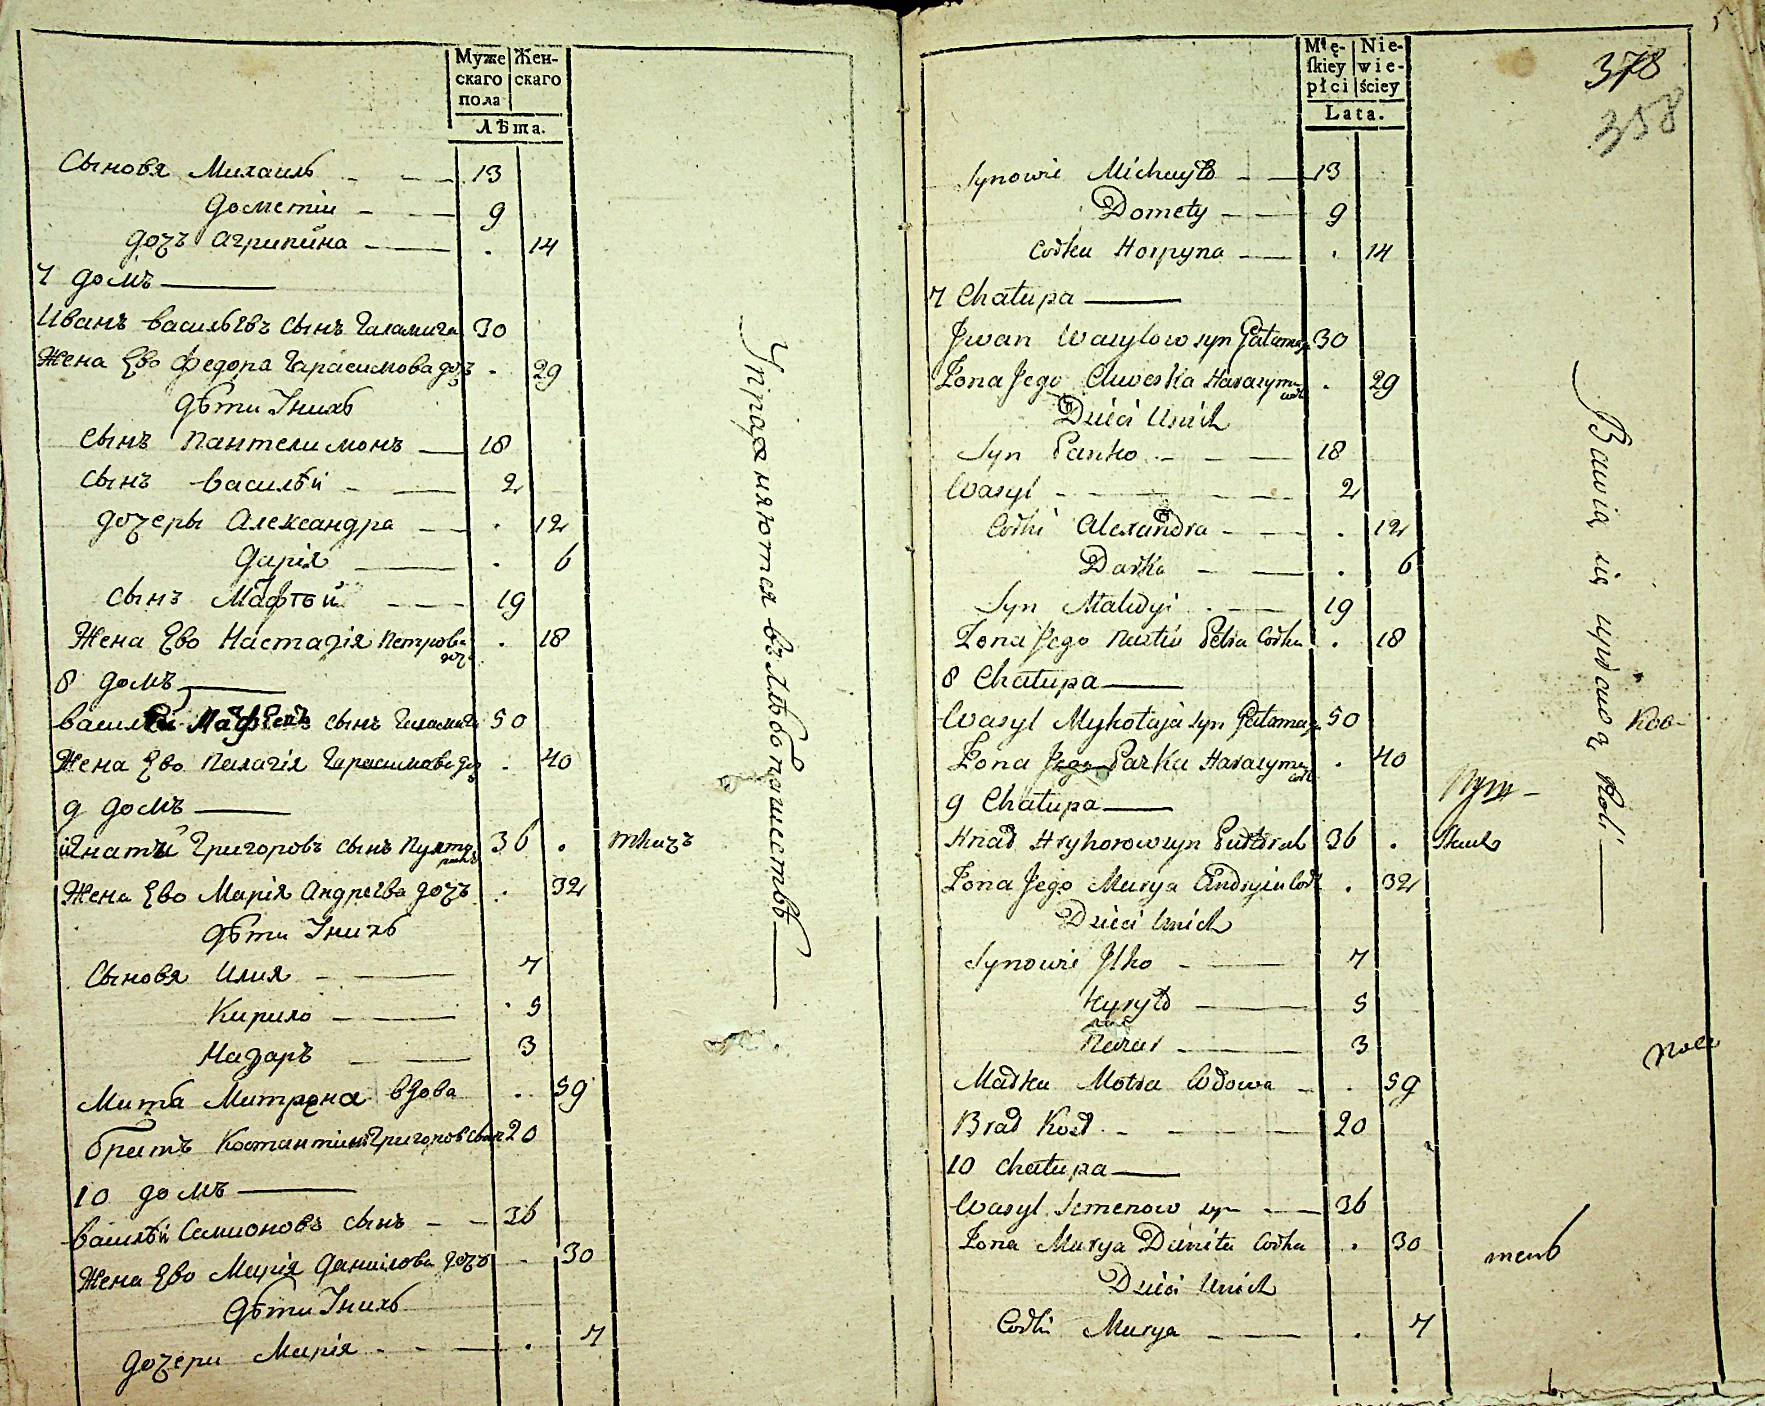 Муже
скаго
пола
Жен-
скаго
Лѣта.
Сыновя Михаилъ - - - 13
Дометій - - 9
дочъ Агрипина - . 14
7 домъ
Иванъ Васильевъ сынъ 30
Жена Ево Федора Гарасимова доч . 29
Дѣти Унихъ
Сынъ Пантелимонъ - 18
Сынъ Василѣй - - 2
дочеры Александра - - . 12
Дарія - . 6
Сынъ - - - 19
Жена Ево Настазія Петрова доч . 18
8 домъ
Василѣй сынъ 50
Жена Ево Пелагія Гарасимова доч . 40
9 домъ
Игнатъ Григоровъ сынъ 36 . ткачъ
Жена Ево Марія Андреева дочъ . 32
Дѣти Унихъ
Сыновя Илия - - 7
Кирило - . 5
Назаръ - 3
Митрона вдова . 59
братъ Костантинъ Григоровъ сынъ 20
10 домъ
Василѣй Семионовъ сынъ - - 36
Жена Ево Марія Данилова дочъ - 30
Дѣти Унихъ
дочери Марія - - - . 7
Упражняются въ хлѣбопашествѣ
Mę-
ſkiey
płci
Nie-
wie-
ściey
Lata.
378
358
Synowie Michayło - - 13
Domety - - 9
Codka Horpyna - . 14
7 Chałupa
Jwan Wasylow syn 30
Żona Jego Harasyma codk . 29
Dzieci Unich
Syn Panko - - - 18
Wasyl - - - - - 2
Codki Alexandra - - - . 12
Darka - - . 6
Syn - - 19
Żona Jego Nastia Petra Codka . 18
8 Chałupa
Wasyl Mykołaja syn 50
Żona Jego Parka Harasyma codk . 40
9 Chałupa
Hnad Hryhorow syn 36 .
Żona Jego Marya Andryia Codk . 32
Dzieci Unich
Synowie Jlko - - 7
Kyryło - 5
Nazar - 3
Madka Motra Wdowa - . 59
Brad Kost - - - - 20
10 Chałupa
Wasyl Semenow syn - - 36
Żona Marya Daniła Codka . 30
Dzieci Unich
Codki Marya - - . 7
Bawią się uprawą Roli